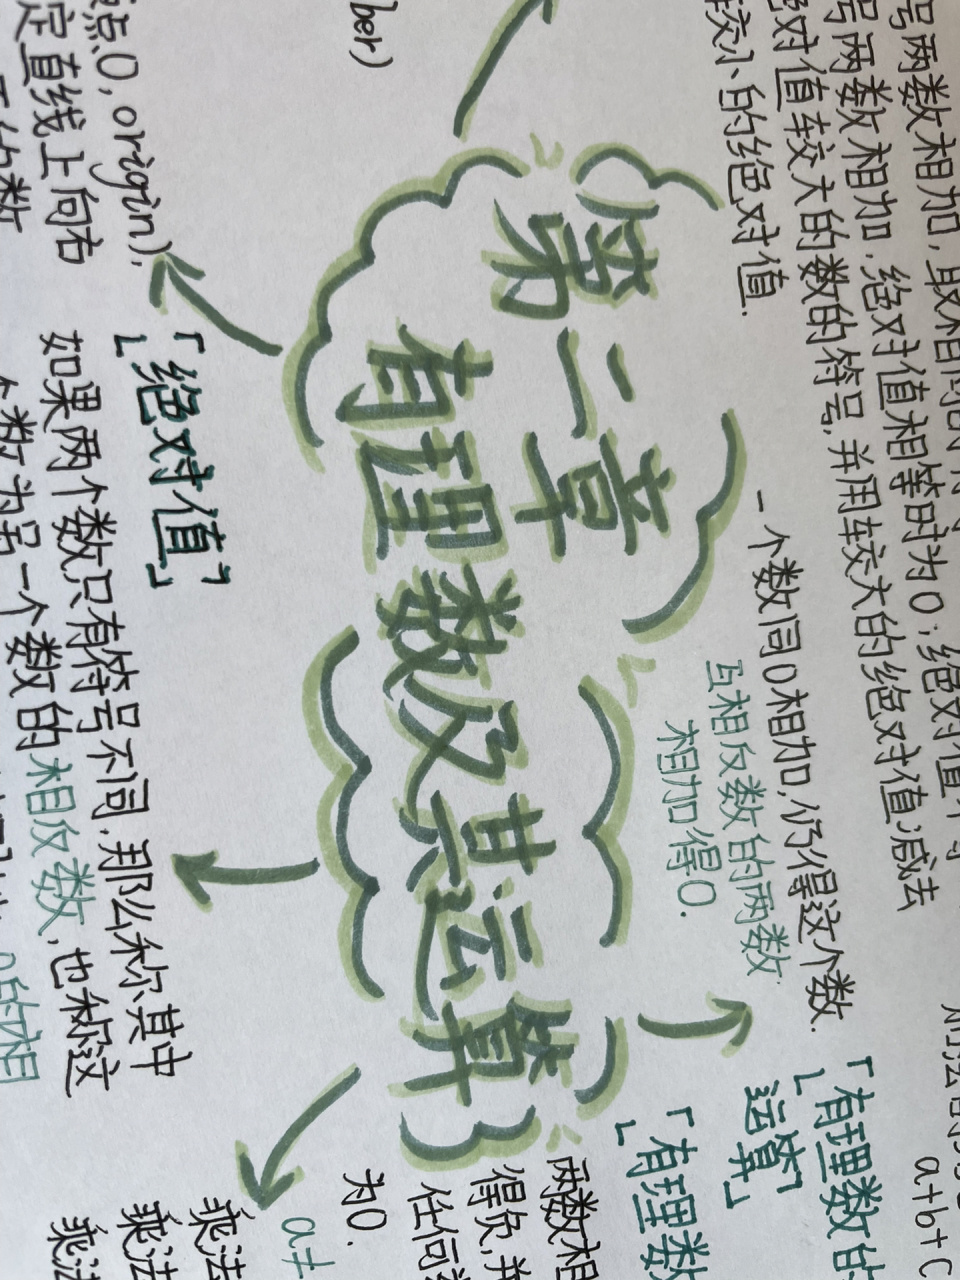 号两数相加,取相同的符
号两数相加,绝对值相等时为0;绝对值不等
绝对值较大的数的符号,并用较大的绝对值减法
较小的绝对值.
一个数同0相加,仍得这个数.
互相反数的两数
相加得0.
a+b+c
「有理数的
运算」
「有理数
第二章
有理数及其运算
ber)
点0,origin).
定直线上向右
的数
「绝对值」
如果两个数只有符号不同,那么称其中
个数为另一个数的相反数,也称这
0的相
两数相
得负,并
任何
为0.
a≠
乘法
乘法
乘法